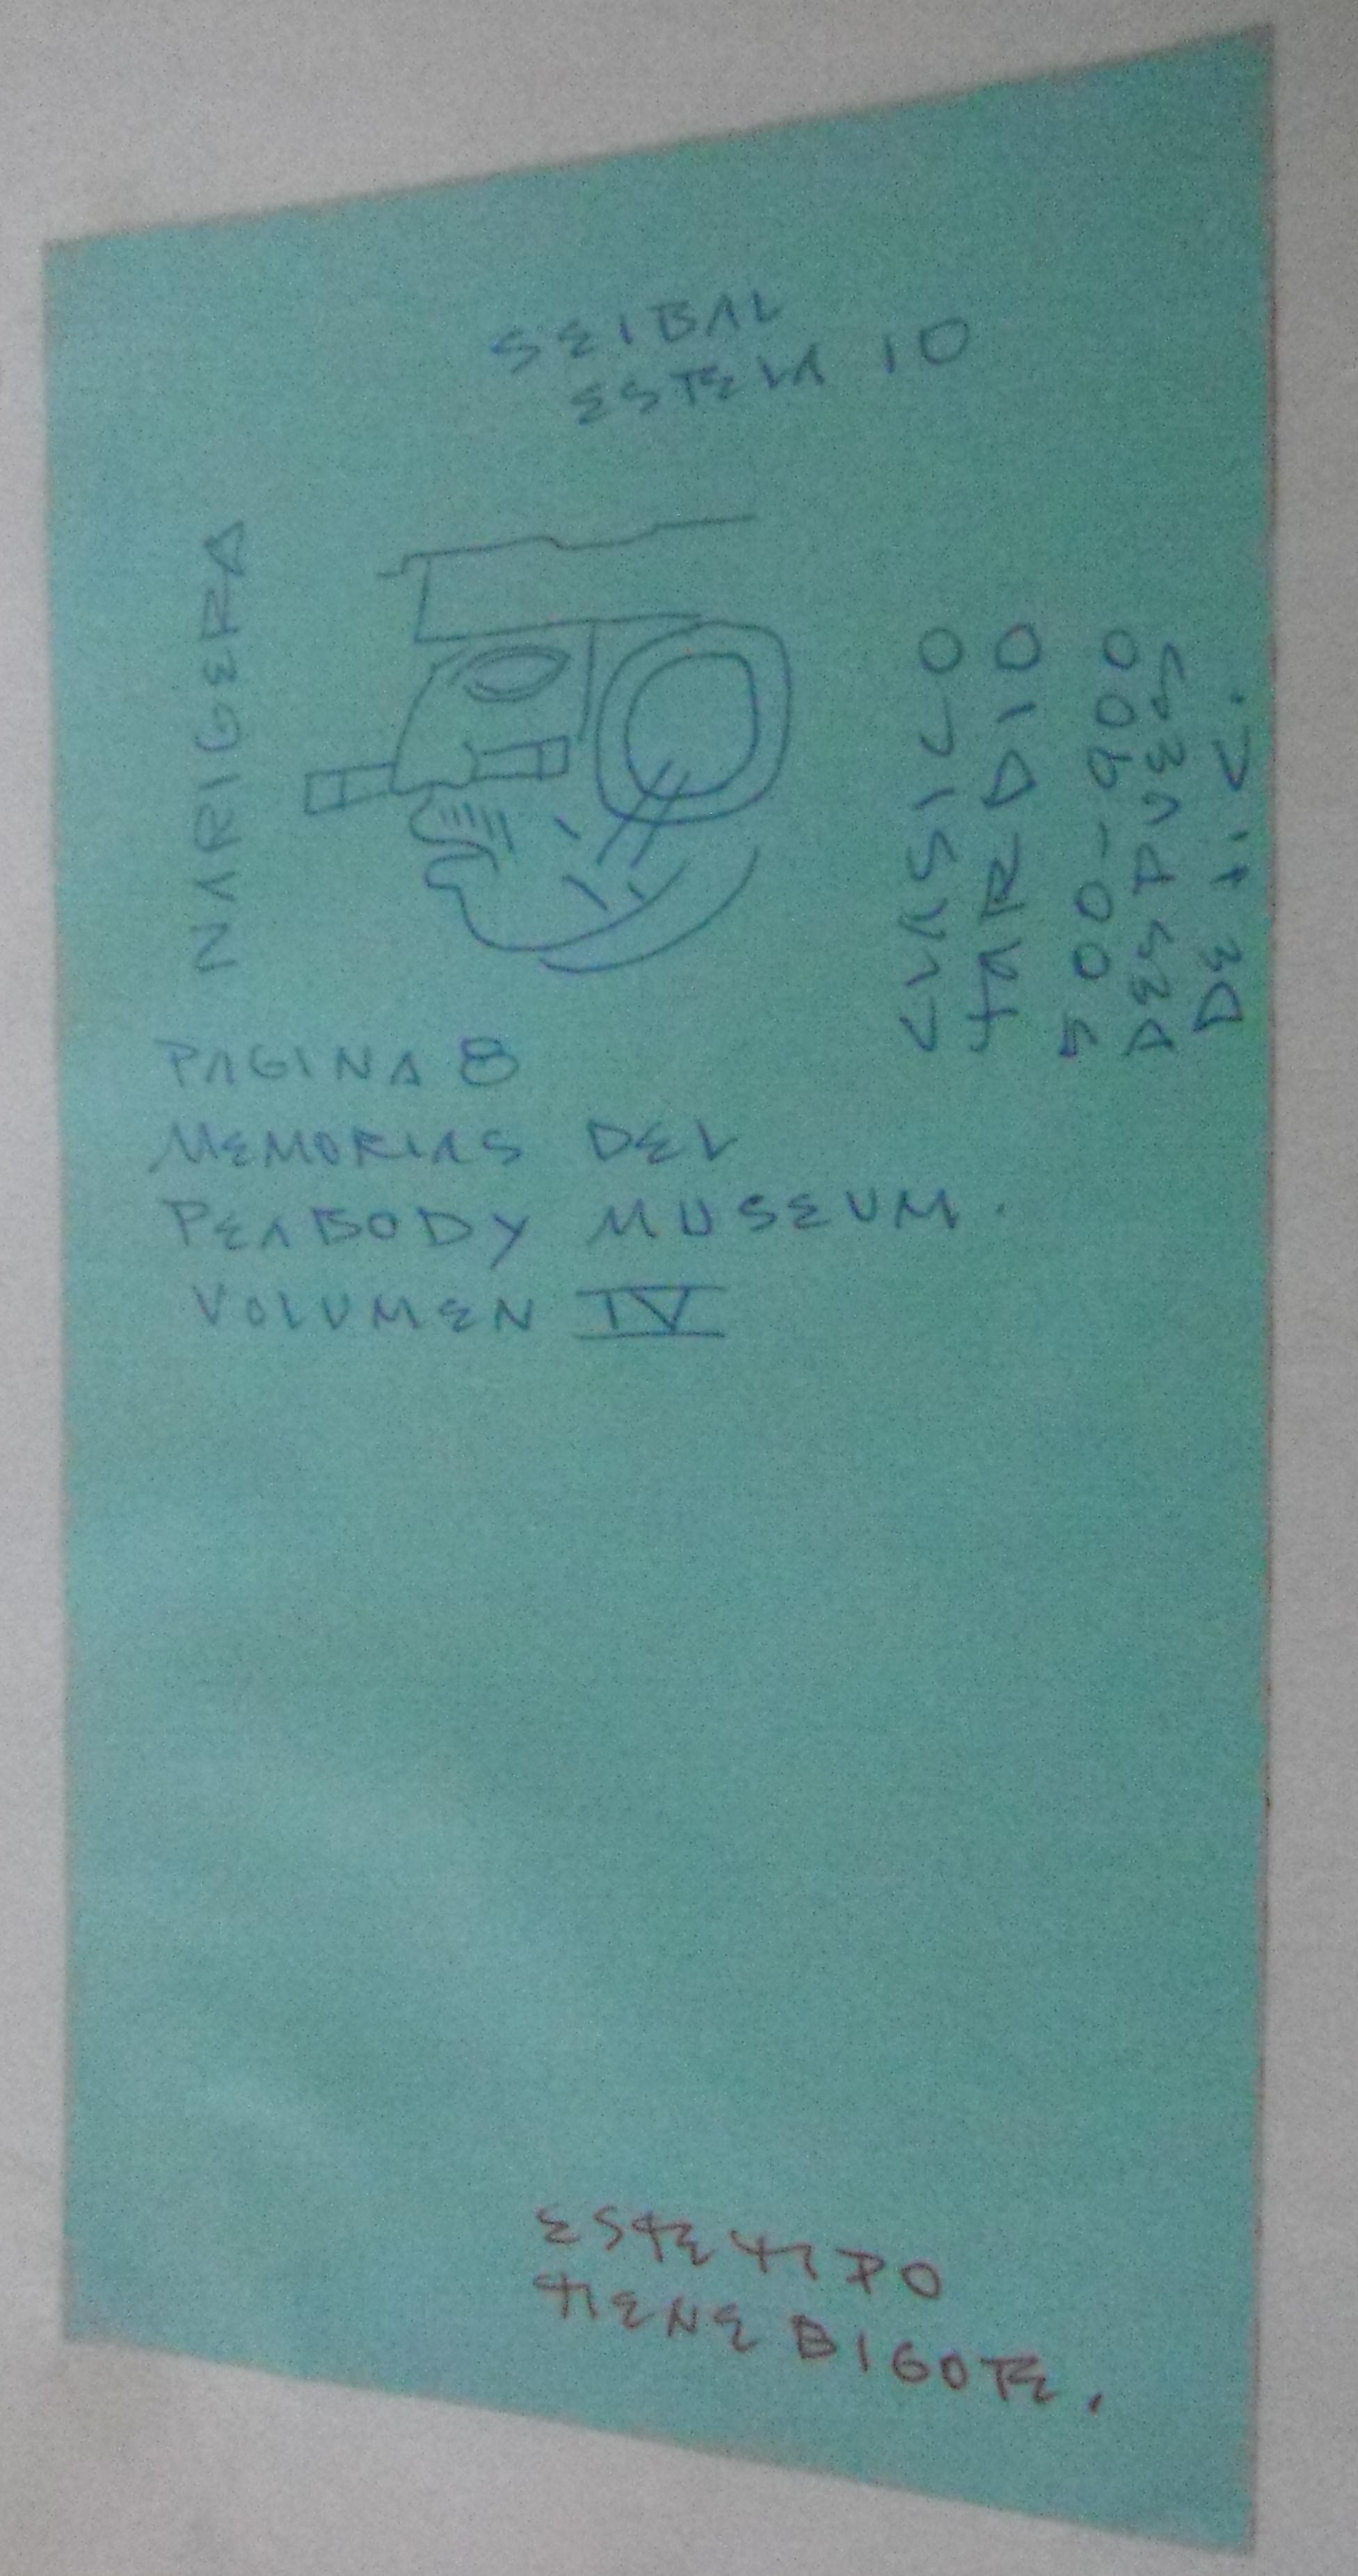 SEIBAL
ESTELA 10
NARIGERA
CLASICO
TARDIO
500-900
DESPUES
DE J.C.
PAGINA 8
MEMORIAS DEL
PEABODY MUSEUM.
VOLUMEN IV
ESTE TIPO
TIENE BIGOTE.